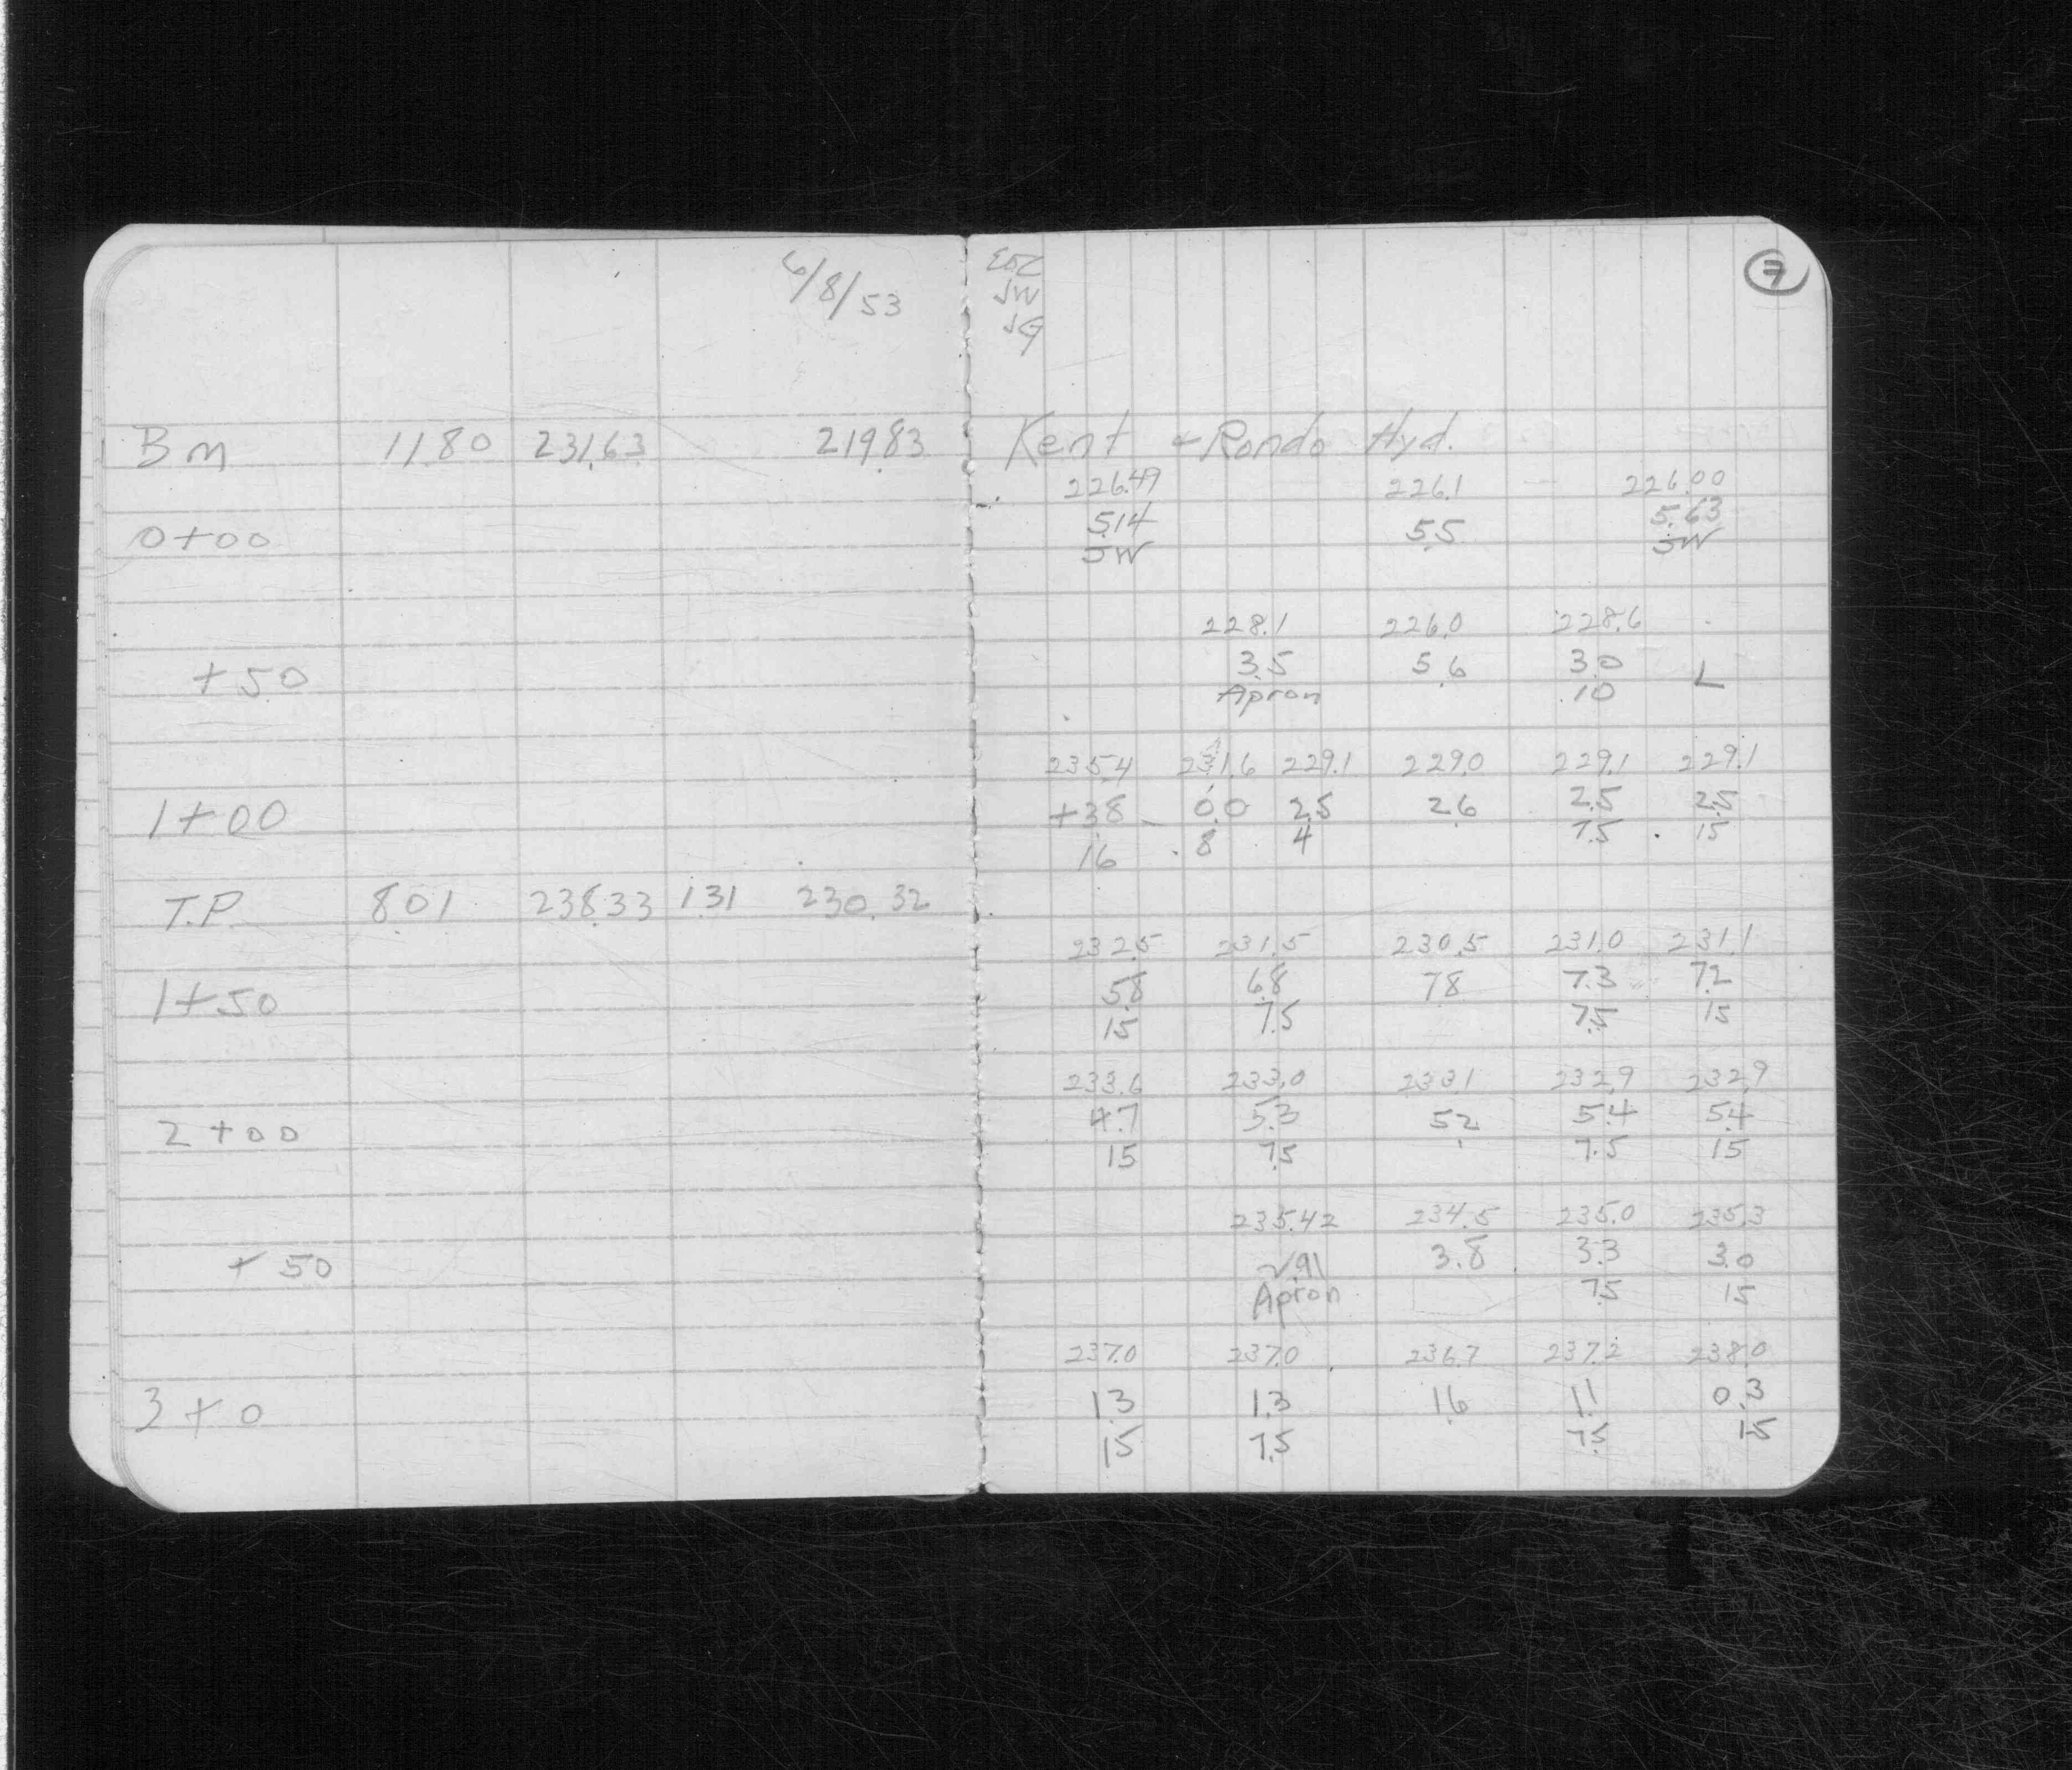 6/8/53
BM 11.80 231.63 219.83
0+00
+50
1+00
T.P. 8.01 238.33 1.31 230.32
1+50
2+00
+50
3+0
JW
JG
7
Kent & Rondo Hyd.
226.49 226.1 226.00
5.14 5.5 5.63
SW SW
228.1 226.0 228.6
3.5 5.6 3.0 L
Apron 10
235.4 231.6 229.1 229.0 229.1 229.1
+3.8 0.0 2.5 2.6 2.5 2.5
16 8 4 7.5 15
232.5 231.5 230.5 231.0 231.1
5.8 6.8 7.8 7.3 7.2
15 7.5 7.5 15
233.6 233.0 233.1 232.9 232.9
4.7 5.3 5.2 5.4 5.4
15 7.5 7.5 15
235.42 234.5 235.0 235.3
2.91 3.8 3.3 3.0
Apron 7.5 15
237.0 237.0 236.7 237.2 238.0
1.3 1.3 1.6 1.1 0.3
15 7.5 7.5 15